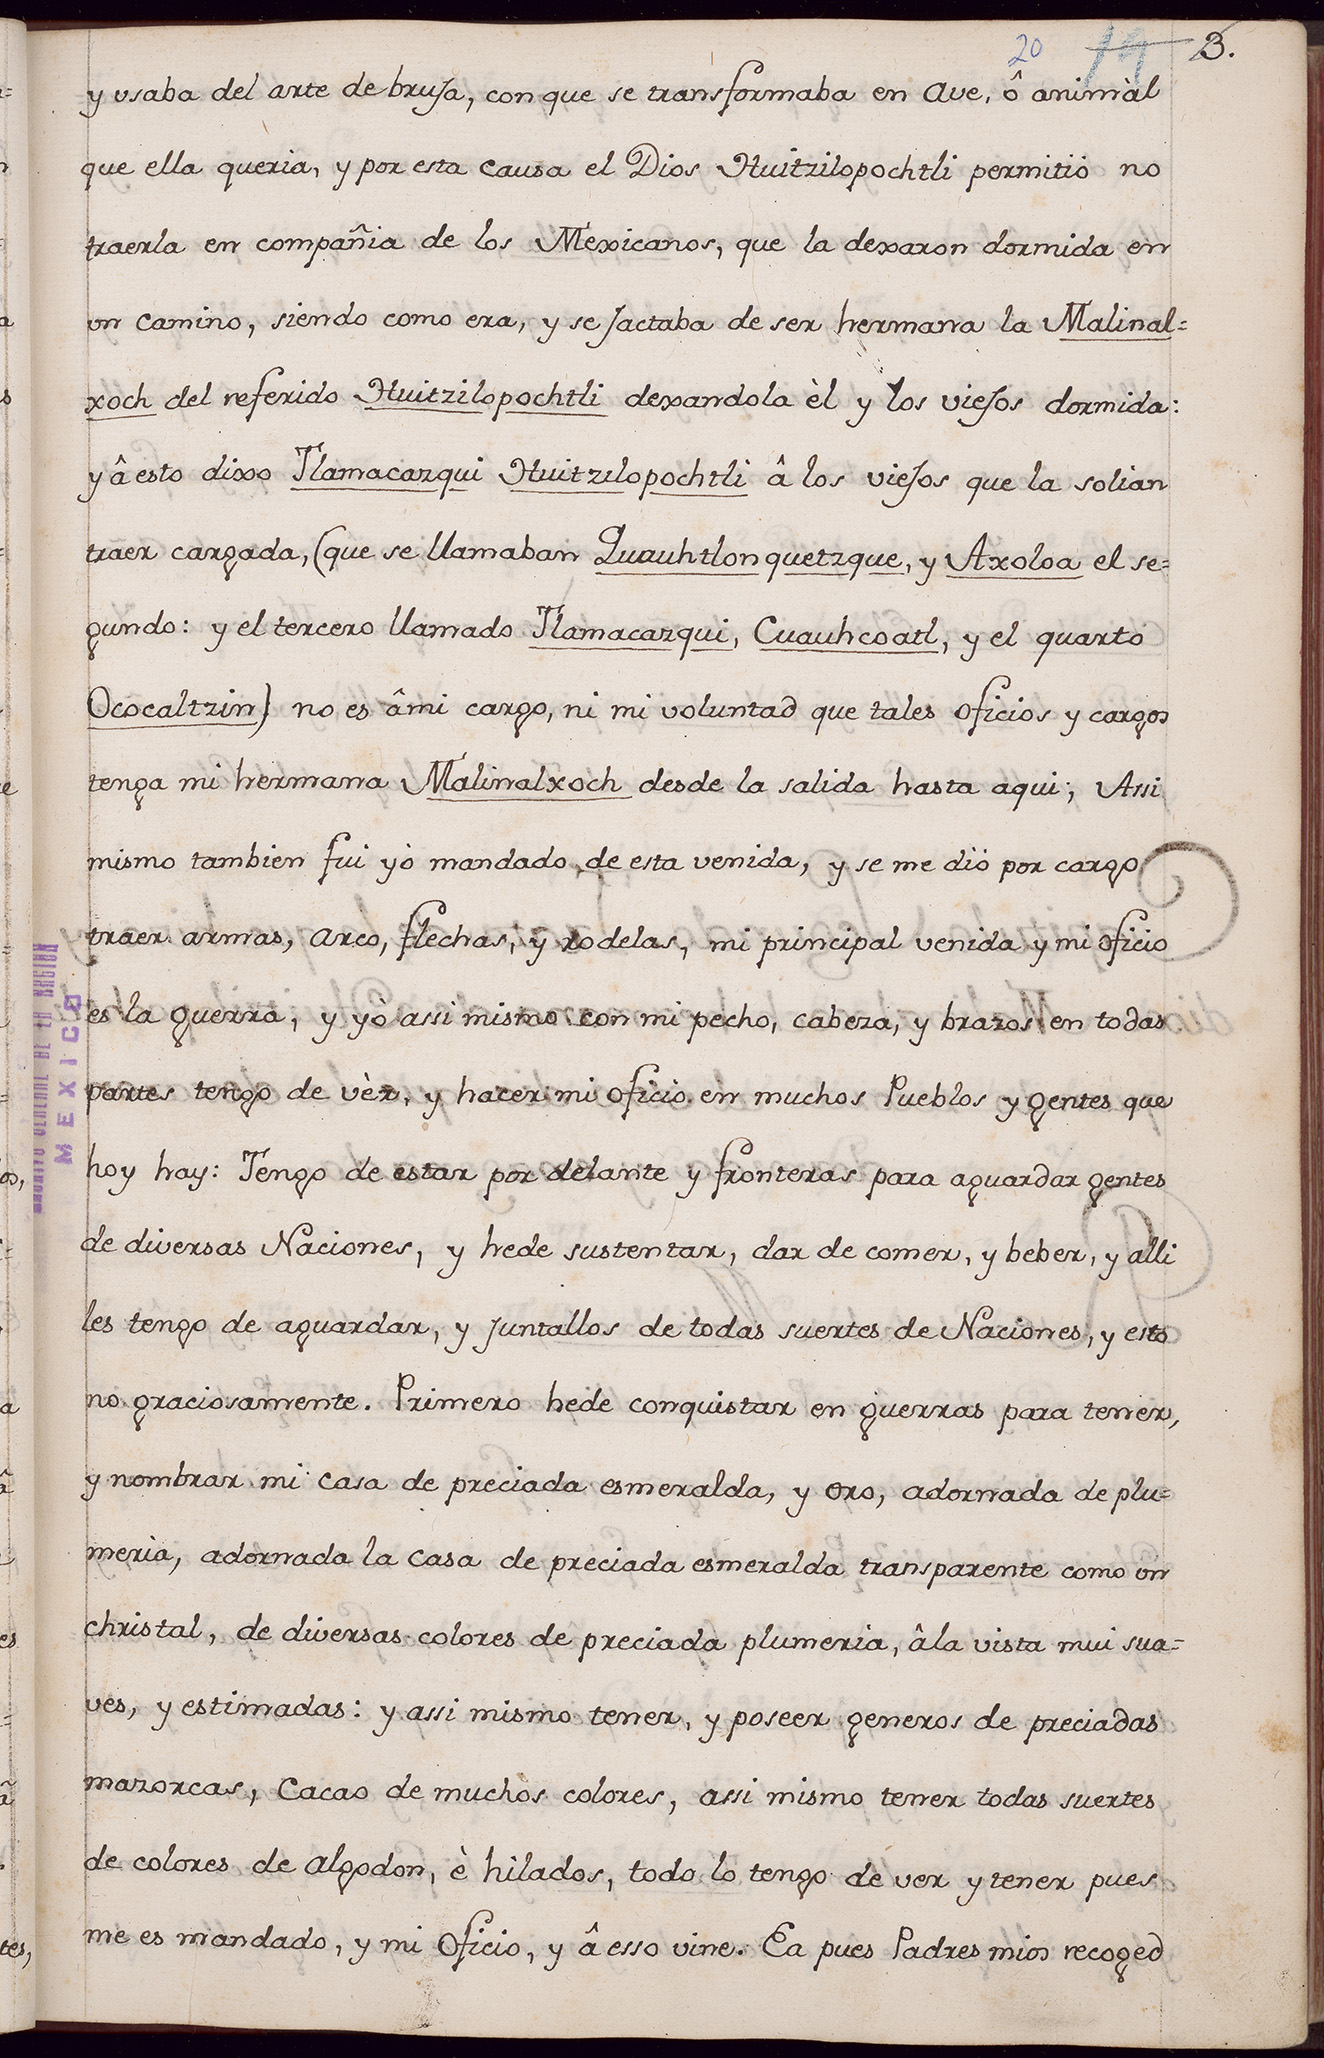 20 19 3.
y vsaba del arte de bruja, con que se transformaba en Ave, ô animàl
que ella queria, y por esta causa el Dios Huitzilopochtli permitiò no
traerla en compañia de los Mexicanos, que la dexaron dormida en
un camino, siendo como era, y se jactaba de ser hermana la Malinal=
xoch del referido Huitzilopochtli dexandola èl y los viejos dormida:
y â esto dixo Tlamacazqui Huitzilopochtli â los viejos que la solian
traer cargada, (que se llamaban Quauhtlonquetzque, y Axoloa el se=
gundo: y el tercero llamado Tlamacazqui, Cuauhcoatl, y el quarto
Ococaltzin) no es âmi cargo, ni mi voluntad que tales oficios y cargos
tenga mi hermana Malinalxoch desde la salida hasta aqui; Assi
mismo tambien fui yò mandado, de esta venida, y se me diò por cargo
traer armas, arco, flechas, y rodelas, mi principal venida y mi oficio
es la guerra, y yò assi mismo con mi pecho, cabeza, y brazos en todas
partes tengo de vèr, y hacer mi oficio en muchos Pueblos y gentes que
hoy hay: Tengo de estar por delante y fronteras para aguardar gentes
de diversas Naciones, y hede sustentar, dar de comer, y beber, y alli
les tengo de aguardar, y juntallos de todas suertes de Naciones, y esto
no graciosamente. Primero hede conquistar en guerras para tener,
y nombrar mi casa de preciada esmeralda, y oro, adornada de plu=
meria, adornada la casa de preciada esmeralda transparente como un
christal, de diversas colores de preciada plumeria, âla vista mui sua=
ves, y estimadas: y assi mismo tener, y poseer generos de preciadas
mazorcas, cacao de muchos colores, assi mismo tener todas suertes
de colores de algodon, è hilados, todo lo tengo de ver y tener pues
me es mandado, y mi oficio, y â esso vine. Ea pues Padres mios recoged
ARCHIVO GENERAL DE LA NACION
MEXICO